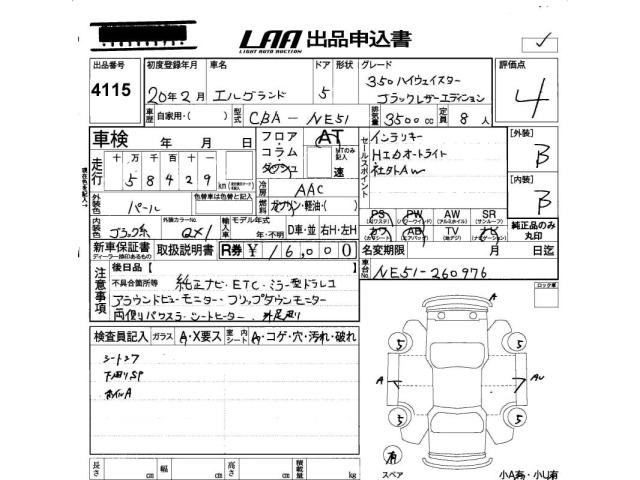 LAA 出品申込書
LIGHT AUTO AUCTION
出品番号 初度登録年月 車名 ドア 形状 グレード 評価点
4115 20年2月 エルグランド 5 350ハイウェイスター
ブラックレザーエディション 4
車歴 自家用・( ) 型式 CBA-NE51 排気量 3500cc 定員 8人
車検 年 月 日 フロア AT
コラム・ MTのみ記入
ダッシュ 速
セールスポイント インテリキー
HIDオートライト
社外AW
[外装] B
[内装] B
走行 十万 万 千 百 十 一
5 8 4 2 9 km
現在色を記入→
冷房 AAC
外装色 パール 色替車は色替と記入 燃料 ガソリン・軽油・( )
PS PW AW SR
(パワステ) (パワーウインド) (アルミホイル) (サンルーフ)
カワ AB TV ナビ
(カワシート) (エアバック) (地デジ) (ナビゲーション)
純正品のみ丸印
内装色 ブラック系 外装カラーNo. QX1 輸入車 モデル年式 年・不明 D車・並 右H・左H
新車保証書 取扱説明書 R券 ¥16,000 名変期限 月 日迄
ディーラー捺印あるもの
車台No. NE51-260976
注意事項 後日品【 】
不具合箇所等 純正ナビ・ETC・ミラー型ドラレコ
アラウンドビューモニター・フリップダウンモニター
両側パワスラ・シートヒーター
ロック車
検査員記入 ガラス A・X要ス 室内シート A・コゲ・穴・汚れ・破れ
シートスア
下回りSP
ホイルA
A
5 5
A AU
5 5
有
スペア 小A有・小U有
長さ cm 幅 cm 高さ cm 積載量 kg